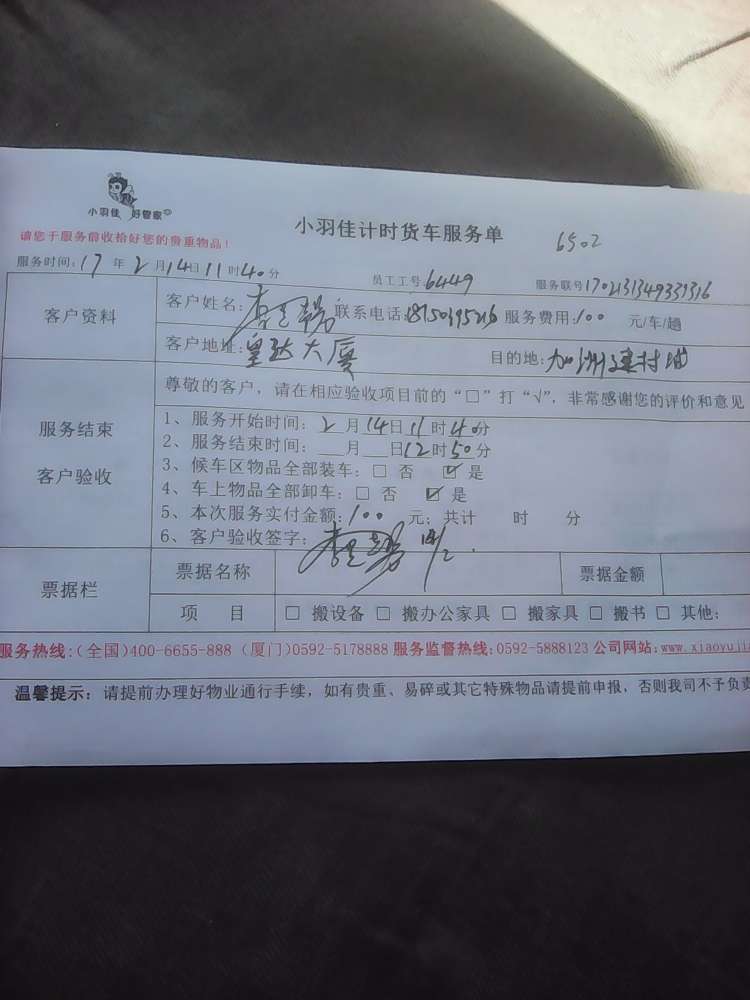 小羽佳 好管家
小羽佳计时货车服务单
6502
请您于服务前收拾好您的贵重物品！
服务时间：17 年 2 月 14 日 11 时 40 分 员工工号 6449 服务联号 1702131349331316
客户资料
客户姓名： 联系电话： 服务费用：100 元/车/趟
客户地址：皇达大厦 目的地：加洲建材城
服务结束 客户验收
尊敬的客户，请在相应验收项目前的“□”打“√”，非常感谢您的评价和意见
1、服务开始时间：2 月 14 日 11 时 40 分
2、服务结束时间：__月__日 12 时 50 分
3、候车区物品全部装车：□ 否 ☑ 是
4、车上物品全部卸车：□ 否 ☑ 是
5、本次服务实付金额：100 元；共计 时 分
6、客户验收签字： 14/2
票据栏
票据名称 票据金额
项 目 □ 搬设备 □ 搬办公家具 □ 搬家具 □ 搬书 □ 其他：
服务热线：(全国)400-6655-888 (厦门)0592-5178888 服务监督热线：0592-5888123 公司网站：www.xiaoyuji
温馨提示：请提前办理好物业通行手续，如有贵重、易碎或其它特殊物品请提前申报，否则我司不予负责